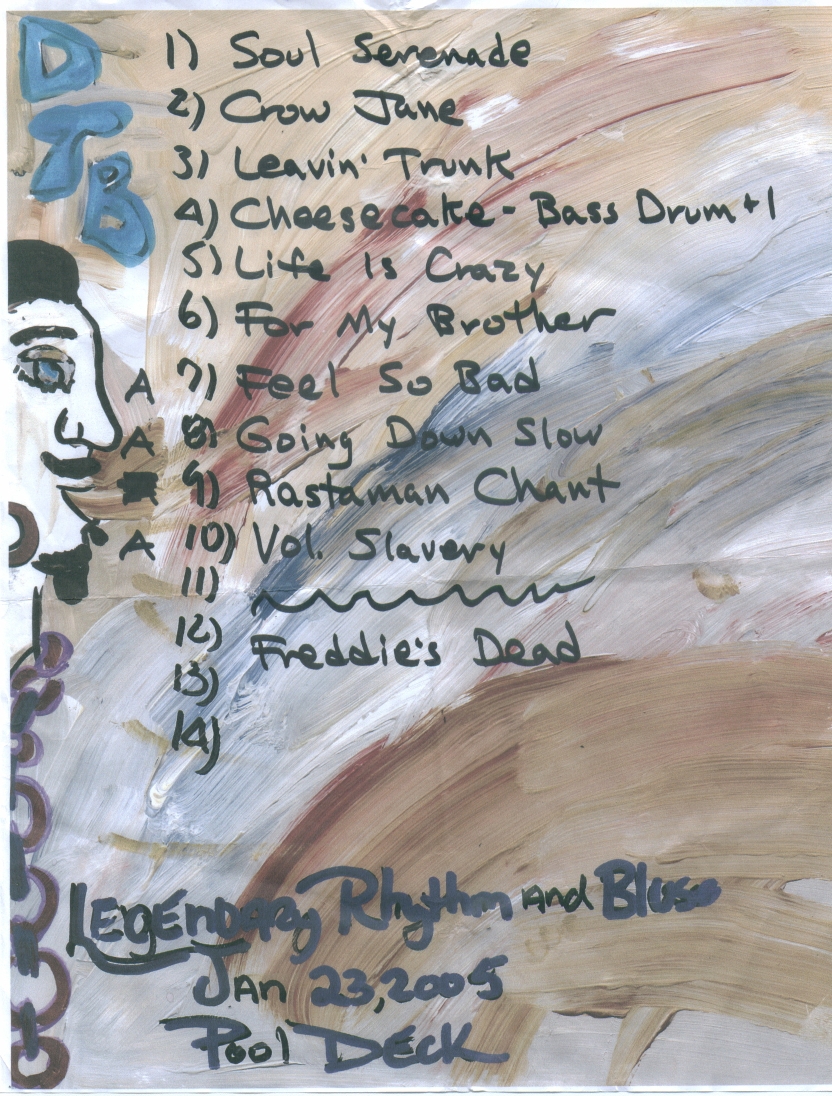 DTB
1) Soul Serenade
2) Crow Jane
3) Leavin' Trunk
4) Cheesecake - Bass Drum +1
5) Life Is Crazy
6) For My Brother
A 7) Feel So Bad
A 8) Going Down Slow
9) Rastaman Chant
A 10) Vol. Slavery
11)
12) Freddie's Dead
13)
14)
Legendary Rhythm and Blues
Jan 23, 2005
Pool Deck